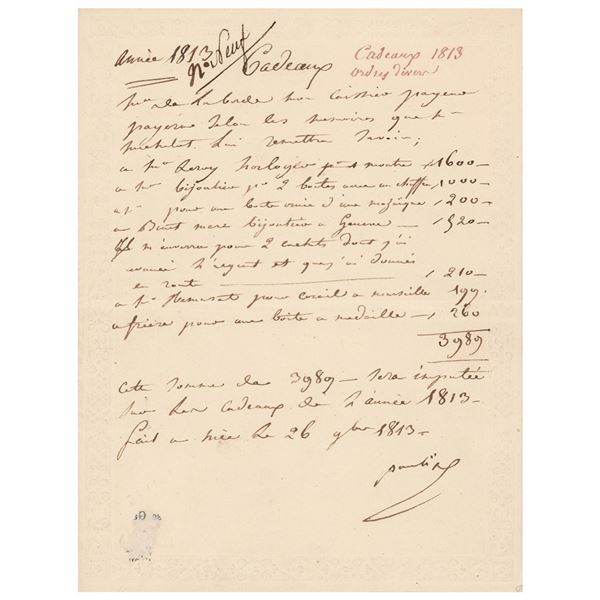 année 1813 Nos Neuf Cadeaux
Cadeaux 1813
ordres divers
Mr de La borde mon caissier payera
payera selon les memoires que Mr
michelet lui remettra savoir;
a Mr Leroy horloger pr 1 montre 1600
a Mr bijoutier pr 2 boites avec un chiffre 1000
a Mr pour une boite ornée d'une mozaique 200
a mare bijoutier a Geneve 520
m'envoyer pour 2 cachets dont j'ai
avancé l'argent et que j'ai donnés
en route 210
a Mr pour corail a marseille 199
a frière pour une boite a medaille 260
3989
cette somme de 3989 sera imputée
sur les cadeaux de l'année 1813
fait a nice le 26 9bre 1813
pauline